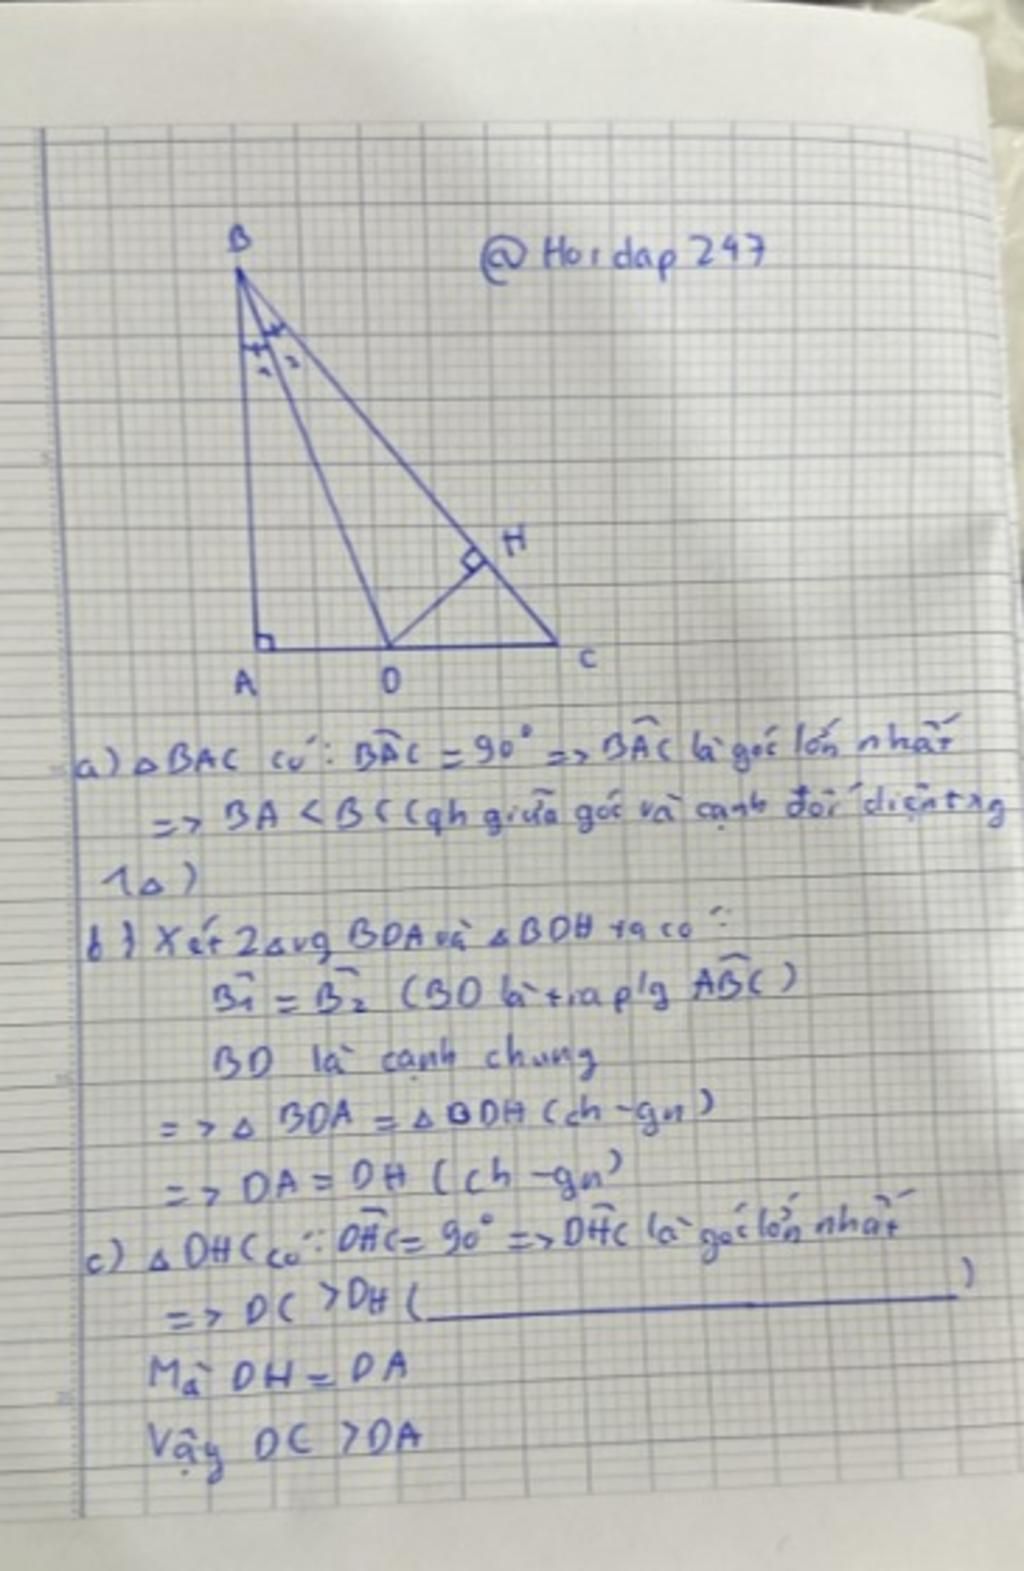 B
@ Hoidap 247
1 2
H
A D C
a) △BAC có: BÂC = 90° => BÂC là góc lớn nhất
=> BA < BC (qh giữa góc và cạnh đối diện trg
1△)
b) Xét 2△vg BDA và △BDH ta có:
B̂₁ = B̂₂ (BD là tia p/g AB̂C)
BD là cạnh chung
=> △ BDA = △BDH (ch-gn)
=> DA = DH (ch-gn)
c) △DHC có: DĤC = 90° => DĤC là góc lớn nhất
=> DC > DH ( )
Mà DH = DA
Vậy DC > DA